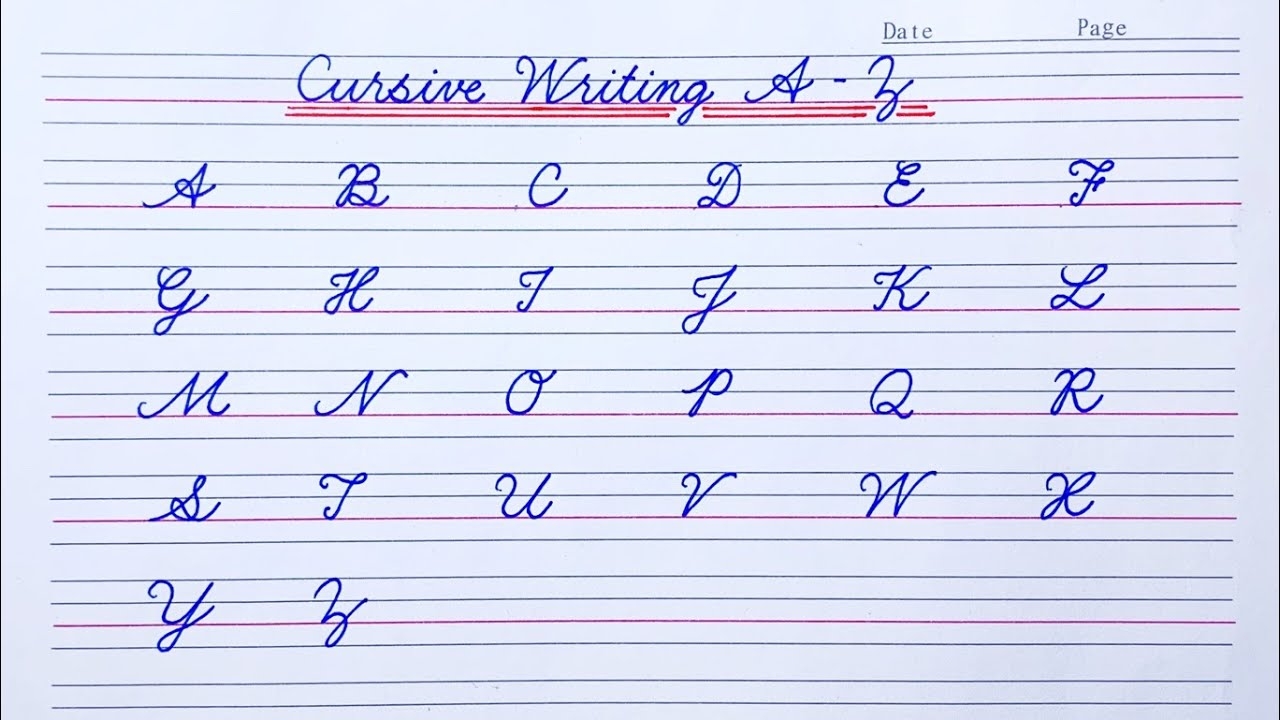 Date Page
Cursive Writing A - Z
A B C D E F
G H I J K L
M N O P Q R
S T U V W X
Y Z